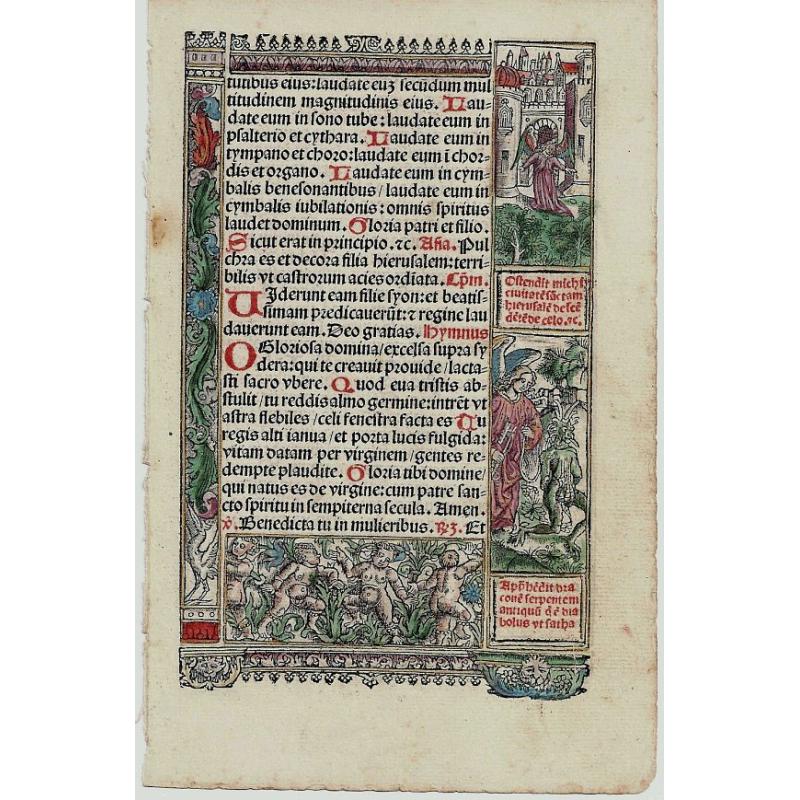 tutibus eius: laudate euʒ secundum mul
titudinem magnitudinis eius. Lau-
date eum in sono tube: laudate eum in
psalterio et cythara. Laudate eum in
tympano et choro: laudate eum ī chor-
dis et organo. Laudate eum in cym-
balis benesonantibus / laudate eum in
cymbalis iubilationis: omnis spiritus
laudet dominum. Gloria patri et filio.
Sicut erat in principio. ⁊c. Aña. Pul
chra es et decora filia hierusalem: terri-
bilis vt castrorum acies ordīata. Cp̄m.
UIderunt eam filie syon: et beatis-
simam predicauerūt: ⁊ regine lau
dauerunt eam. Deo gratias. Hymnus
O Gloriosa domina / excelsa supra sy
dera: qui te creauit prouide / lacta-
sti sacro vbere. Quod eua tristis ab-
stulit / tu reddis almo germine: intrēt vt
astra flebiles / celi fenestra facta es Tu
regis alti ianua / et porta lucis fulgida:
vitam datam per virginem / gentes re-
dempte plaudite. Gloria tibi domine /
qui natus es de virgine: cum patre san-
cto spiritu in sempiterna secula. Amen.
v̄. Benedicta tu in mulieribus. Rʒ. Et
Ostendit michi
ciuitatē sāctam
hierusalē descē
dētē de celo. ⁊c.
App̄hēdit dra
conē serpentem
antiquū q̄ ē dia
bolus vt satha